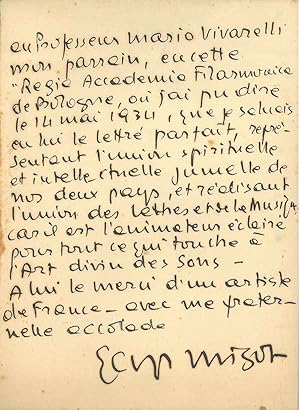 au Professeur Mario Vivarelli
mon parrain, en cette
"Regia Accademia Filarmonica
de Bologne, où j'ai pu dire
le 14 mai 1934, que je saluais
en lui le lettré parfait, repré
sentant l'union spirituelle
et intellectuelle jumelle de
nos deux pays, et réalisant
l'union des Lettres et de la Musique
car il est l'animateur éclairé
pour tout ce qui touche à
l'Art divin des Sons -
A lui le merci d'un artiste
de France - avec ma frater-
nelle accolade
Migot